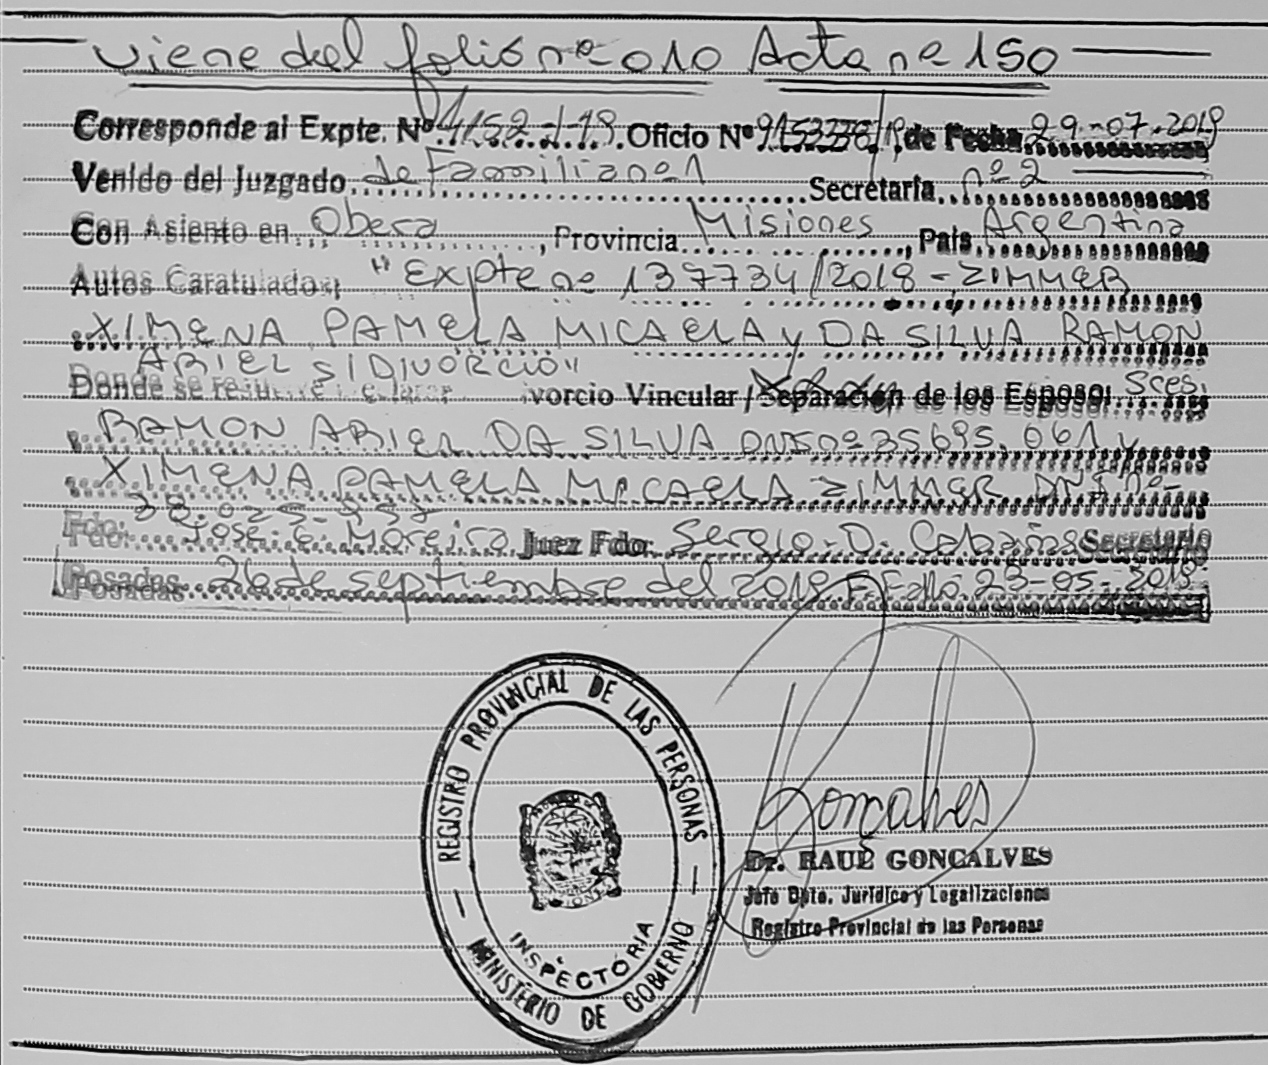 Viene del folio nº 010 Acta nº 150
Corresponde al Expte. Nº 4152-/-19. Oficio Nº 9153378/19, de Fecha 29-07-2019
Venido del Juzgado de Familia nº 1 Secretaria nº 2
Con Asiento en Obera, Provincia Misiones, Pais Argentina
Autos Caratulados: "Expte nº 137734/2018 - ZIMMER
XIMENA PAMELA MICAELA y DA SILVA RAMON
ARIEL S/DIVORCIO"
Donde se resuelve Declarar vorcio Vincular / Separación de los Esposos: Sres.
RAMON ARIEL DA SILVA DNI nº 35.695.061 y
XIMENA PAMELA MICAELA ZIMMER DNI nº-
38.025-
Fdo: José G. Moreira Juez Fdo: Sergio. D. Cabañas Secretario
Posadas 26 de septiembre del 2019 Fallo 23-05-2019
REGISTRO PROVINCIAL DE LAS PERSONAS
INSPECTORIA
MINISTERIO DE GOBIERNO
Goncalves
Dr. RAUL GONCALVES
Jefe Dpto. Jurídico y Legalizaciones
Registro Provincial de las Personas